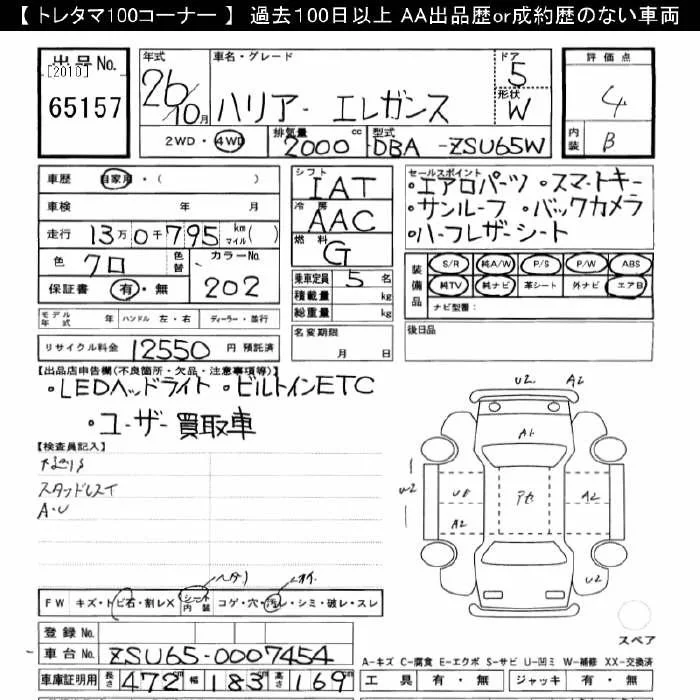 【 トレタマ100コーナー 】 過去100日以上 AA出品歴or成約歴のない車両
出品No.
[2010]
65157
年式 26/10月
車名・グレード ハリアー エレガンス
ドア 5
形状 W
評価点 4
内装 B
2WD・4WD
排気量 2000 cc
型式 DBA-ZSU65W
車歴 自家用・( )
車検 年 月
走行 13万0千795 km マイル( )
色 クロ 色替
カラーNo. 202
保証書 有・無
シフト IAT
冷房 AAC
燃料 G
乗車定員 5 名
積載量 kg
総重量 kg
セールスポイント
・エアロパーツ ・スマートキー
・サンルーフ ・バックカメラ
・ハーフレザーシート
装備品
S/R 純A/W P/S P/W ABS
純TV 純ナビ 革シート 外ナビ エアB
ナビ型番:
モデル年式 年 ハンドル 左・右 ディーラー・並行
リサイクル料金 12550 円 預託済
名変期限 月 日
後日品
【出品店申告欄(不良箇所・欠品・注意事項等)】
・LEDヘッドライト ・ビルトインETC
・ユーザー買取車
【検査員記入】
スタッドレスイ
A・U
U2 A2
A1
U2
A2
A2
U2
FW キズ・トビ石・割レX シート内装 コゲ・穴・汚レ・シミ・破レ・スレ
スペア
登録No.
車台No. ZSU65-0007454
A-キズ C-腐食 E-エクボ S-サビ U-凹ミ W-補修 XX-交換済
車庫証明用 長さ 472 cm 幅 183 cm 高さ 169 cm
工具 有・無 ジャッキ 有・無